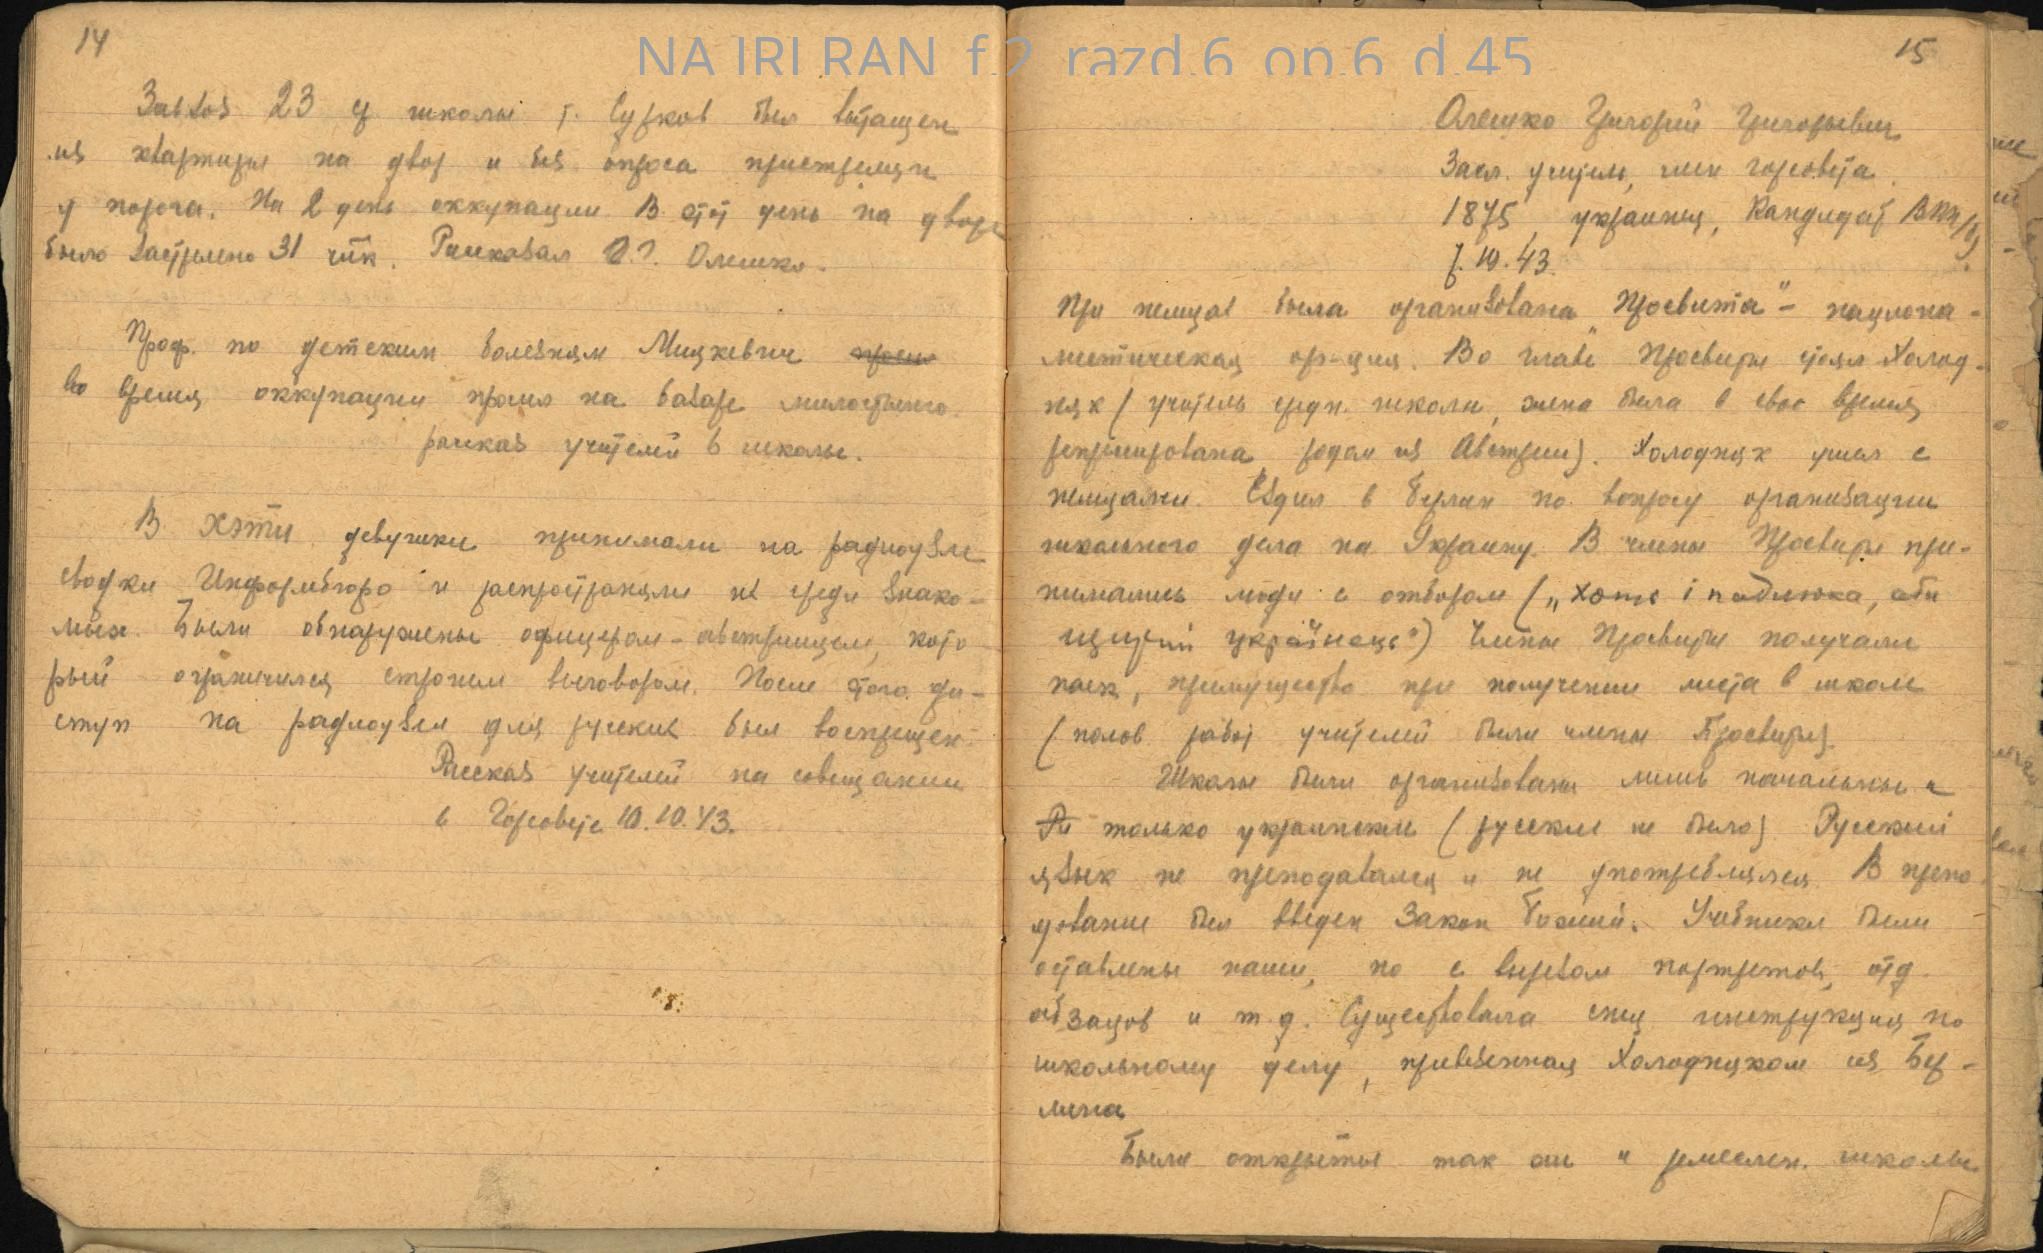 NA IRI RAN f.2 razd.6 op.6 d.45
14
Завхоз 23 й школы т. Сурков был вытащен
из квартиры на двор и без опроса пристрелян
у порога. На 2 день оккупации. В этот день на дворе
было застрелено 31 чк. Рассказал Г. Олешко.
Проф. по детским болезням Мицкевич
во время оккупации просил на базаре милостыню.
рассказ учителей в школе.
В ХЭТИ девушки принимали на радиоузле
сводки Информбюро и распространяли их среди знако-
мых. Были обнаружены офицером-австрийцем, кото
рый ограничился строгим выговором. После этого до-
ступ на радиоузел для русских был воспрещен.
Рассказ учителей на совещании
в Горсовете 10.10.43.
15
Олешко Григорий Григорьевич
Засл. учитель, член горсовета.
1875, украинец, кандидат ВКП/б/
7.10.43.
При немцах была организована "Просвита" - национа-
листическая ор-ция. Во главе Просвиты стоял Холод-
няк (учитель средн. школы, жена была в свое время
репрессирована, родом из Австрии). Холодняк ушел с
немцами. Ездил в Берлин по вопросу организации
школьного дела на Украину. В члены Просвиты при-
нимались люди с отбором („хоть і падлюка, аби
щирий українець") Члены Просвиты получали
паек, преимущество при получении места в школе
(полов работ учителей были члены Просвиты).
Школы были организованы лишь начальные и
только украинские (русских не было) Русский
язык не преподавался и не употреблялся. В препо
давание был введен Закон Божий. Учебники были
оставлены наши, но с вырезом портретов, отд.
абзацов и т.д. Существовала спец инструкция по
школьному делу, привезенная Холодняком из Бер-
лина
Были открыты так же и ремеслен. школы